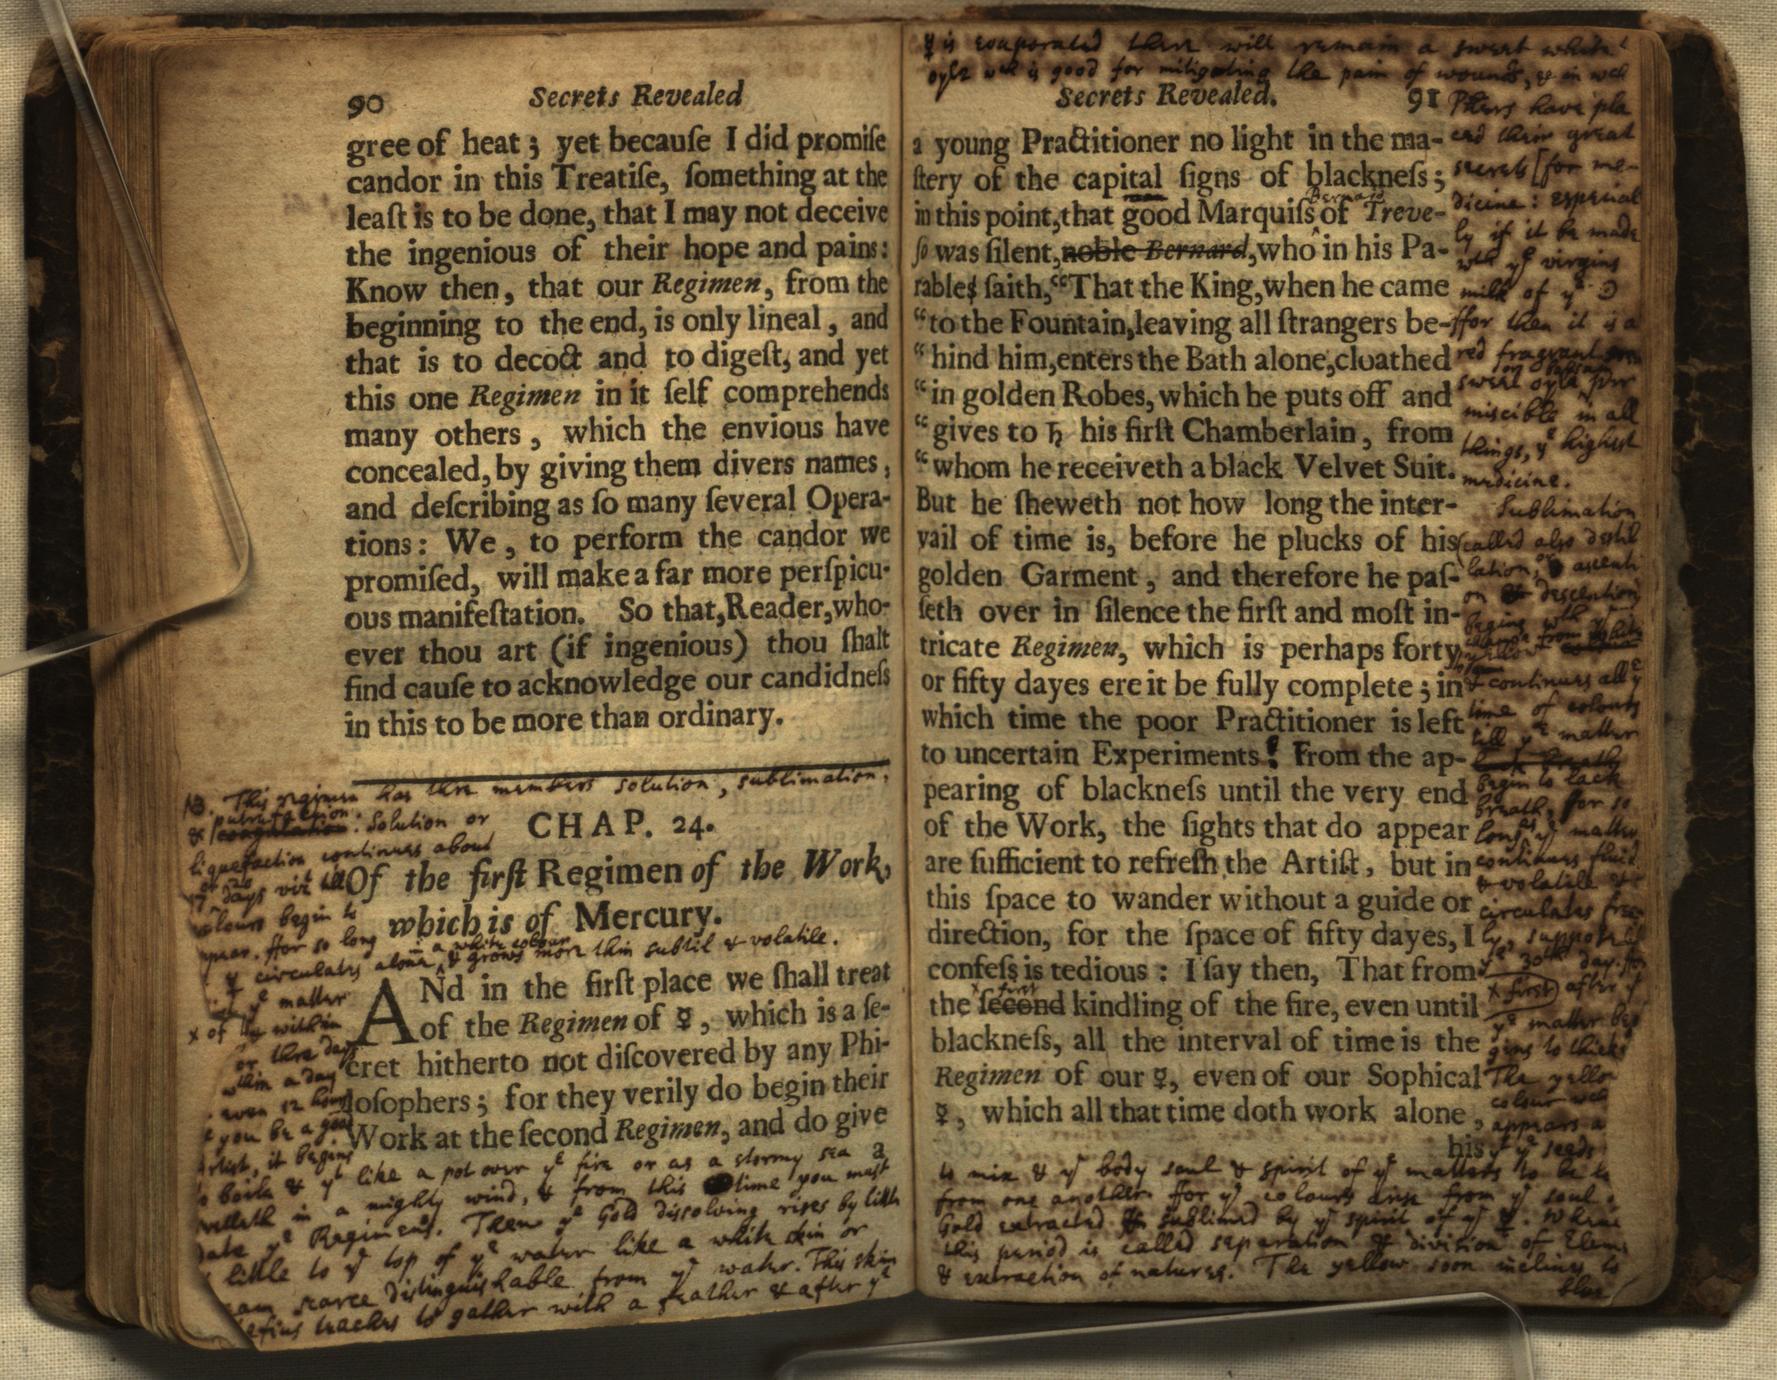 90 Secrets Revealed
gree of heat; yet becauſe I did promiſe
candor in this Treatiſe, ſomething at the
leaſt is to be done, that I may not deceive
the ingenious of their hope and pains:
Know then, that our Regimen, from the
beginning to the end, is only lineal, and
that is to decoct and to digeſt, and yet
this one Regimen in it ſelf comprehends
many others, which the envious have
concealed, by giving them divers names,
and deſcribing as ſo many ſeveral Opera-
tions: We, to perform the candor we
promiſed, will make a far more perſpicu-
ous manifeſtation. So that, Reader, who-
ever thou art (if ingenious) thou ſhalt
find cauſe to acknowledge our candidneſs
in this to be more than ordinary.
NB. This regimen has three members solution, sublimation,
& putrefaction. Solution or
liquefaction continues about
days
colours begin to
ffor so long
☿ circulates alone in a white colour & grows more thin subtil & volatile.
CHAP. 24.
Of the firſt Regimen of the Work,
which is of Mercury.
yᵉ matter
× of within
or three days
within a day
even 12 hours
you be a good
it begins
ANd in the firſt place we ſhall treat
of the Regimen of ☿, which is a ſe-
cret hitherto not diſcovered by any Phi-
loſophers; for they verily do begin their
Work at the ſecond Regimen, and do give
a
boile & yᵗ like a pot over yᵉ fire or as a stormy sea
in a mighty wind, & from this time you must
date yᵉ Regimens. Then yᵉ Gold dissolving rises by little
little to yᵉ top of yᵉ water like a white skin or
cream scarce distinguishable from yᵉ water. This skin
teaches to gather with a feather & after yᵉ
☿ is evaporated there will remain a sweet white
oyle wᶜʰ is good for mitigating the pain of wounds, & in wᶜʰ
Secrets Revealed. 91
a young Practitioner no light in the ma-
ſtery of the capital ſigns of blackneſs;
Bernard
in this point, that good Marquiſs of Treve-
ſo was ſilent, noble Bernard, who in his Pa-
rables ſaith, “That the King, when he came
“to the Fountain, leaving all ſtrangers be-
“hind him, enters the Bath alone, cloathed
“in golden Robes, which he puts off and
“gives to ♄ his firſt Chamberlain, from
“whom he receiveth a black Velvet Suit.
But he ſheweth not how long the inter-
vail of time is, before he plucks of his
golden Garment, and therefore he paſ-
ſeth over in ſilence the firſt and moſt in-
tricate Regimen, which is perhaps forty
or fifty dayes ere it be fully complete; in
which time the poor Practitioner is left
to uncertain Experiments: From the ap-
pearing of blackneſs until the very end
of the Work, the ſights that do appear
are ſufficient to refreſh the Artiſt, but in
this ſpace to wander without a guide or
direction, for the ſpace of fifty dayes, I
confeſs is tedious: I ſay then, That from
× first
the ſecond kindling of the fire, even until
blackneſs, all the interval of time is the
Regimen of our ☿, even of our Sophical
☿, which all that time doth work alone,
his
Phers have pla
ced their great
secrets [for me-
dicine: especial
ly if it be made
wᵗʰ yᵉ virgins
milk of yᵉ ☽
ffor then it is a
red fragrant
sweet oyle or balsam per
miscible in all
things, yᵉ highest
medicine.
Sublimation
(called also distil
lation, or ascenti
on & descention)
begins wᵗʰ yᵉ
& continues all yᵉ
time of colours
till yᵉ matter
begin to lack
breath, ffor so
long as yᵉ matter
continues fluid
& volatile it
circulates free
ly, suppose till
yᵉ 30ᵗʰ day. for
× first) after yᵗ
yᵉ matter be
gins to thicken
The yellow
colour wᶜʰ
appears a
yᵗ yᵉ seeds
to mix & yᵉ body soul & spirit of yᵉ matters to be
from one another. ffor yᵉ colours arise from yᵉ soul
Gold extracted & sublimed by yᵉ spirit of yᵉ ☿. Whence
this period is called separation & division of Elem
& extraction of natures. The yellow soon inclines to
blue